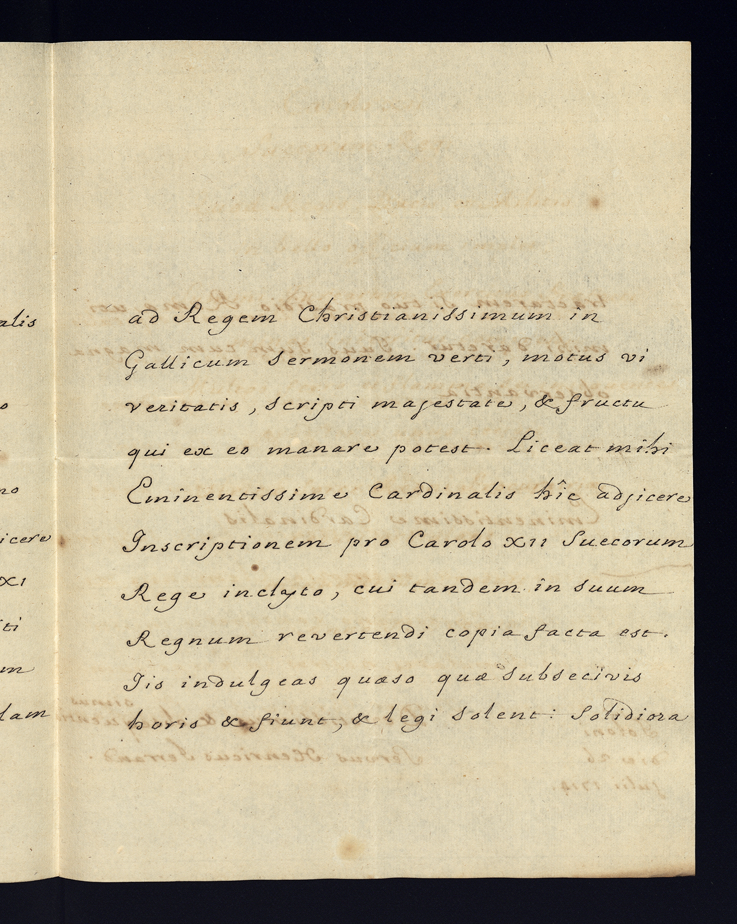 alis
o
no
icere
XI
iti
m
lam
ad Regem Christianissimum in
Gallicum Sermonem verti, motus vi
veritatis, scripti majestate, & fructu
qui ex eo manare potest. Liceat mihi
Eminentissime Cardinalis hîc adjicere
Inscriptionem pro Carolo XII Suecorum
Rege inclyto, cui tandem in suum
Regnum revertendi copia facta est.
Iis indulgeas quæso quæ subsecivis
horis & fiunt, & legi solent: Solidiora